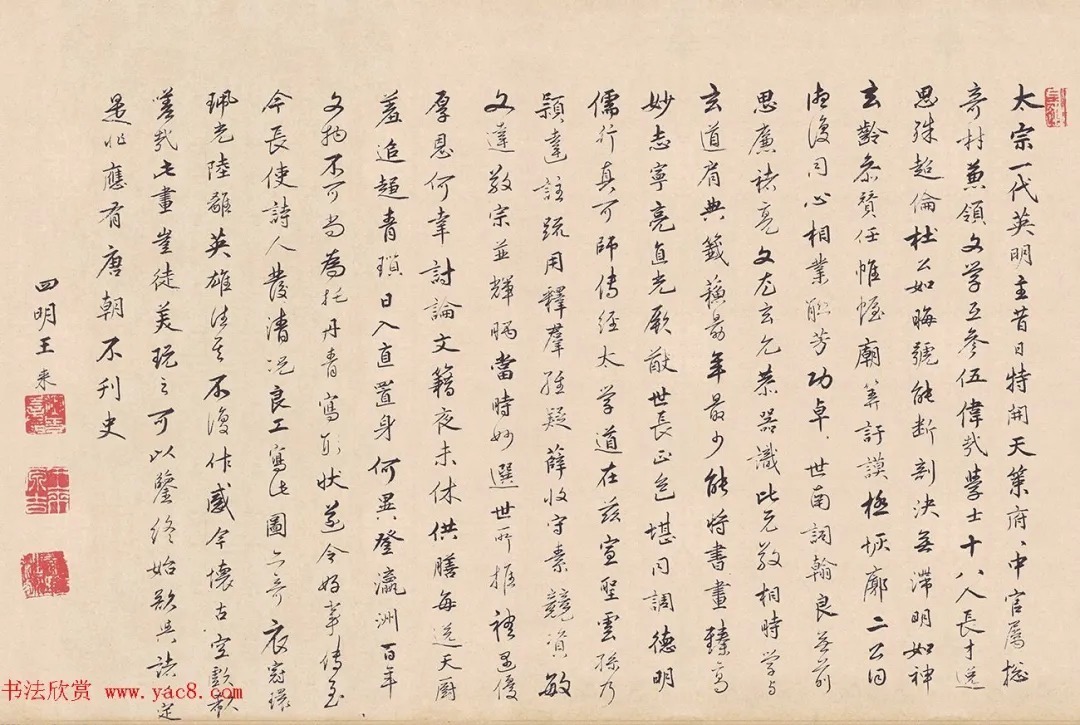 太宗一代英明主昔日特開天策府中官屬總
奇材兼領文學五參伍偉哉學士十八人長才逸
思殊超倫杜公如晦號能斷剖決無滯明如神
玄齡參贊任帷幄廟筭訏謨極恢廓二公同
心相業能芳功卓世南詞翰良無前
思廉褚亮文尤玄允恭器識比元敬相時學與
玄道肩典籤蘇最年最少能將書畫臻高
妙志寧亮直光厥猷世長正色堪同調德明
儒行真可師傳經太學道在茲宣聖雲孫乃
穎達註疏用釋群經疑薛收守素競資敏
文達敬宗並輝暎當時妙選世所推禮遇優
厚恩何幸討論文籍夜未休供膳每送天廚
羞追趨青瑣日入直置身何異登瀛洲百年
文物不可尚為托丹青寫形狀遂令好事傳至
今長使詩人發清況良工寫此圖亦奇衣冠環
珮光陸離英雄往矣不復作感今懷古空歔欷
嗟哉此畫豈徒美玩之可以鑒終始歐其誌定
是非應有唐朝不刊史
四明王來
书法欣赏 www.yac8.com